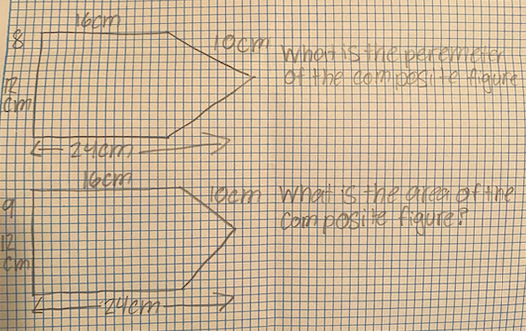 16cm
8
10cm
What is the peremeter
of the composite figure
12
cm
24cm
16cm
9
10cm
What is the area of the
composite figure?
12
cm
24cm